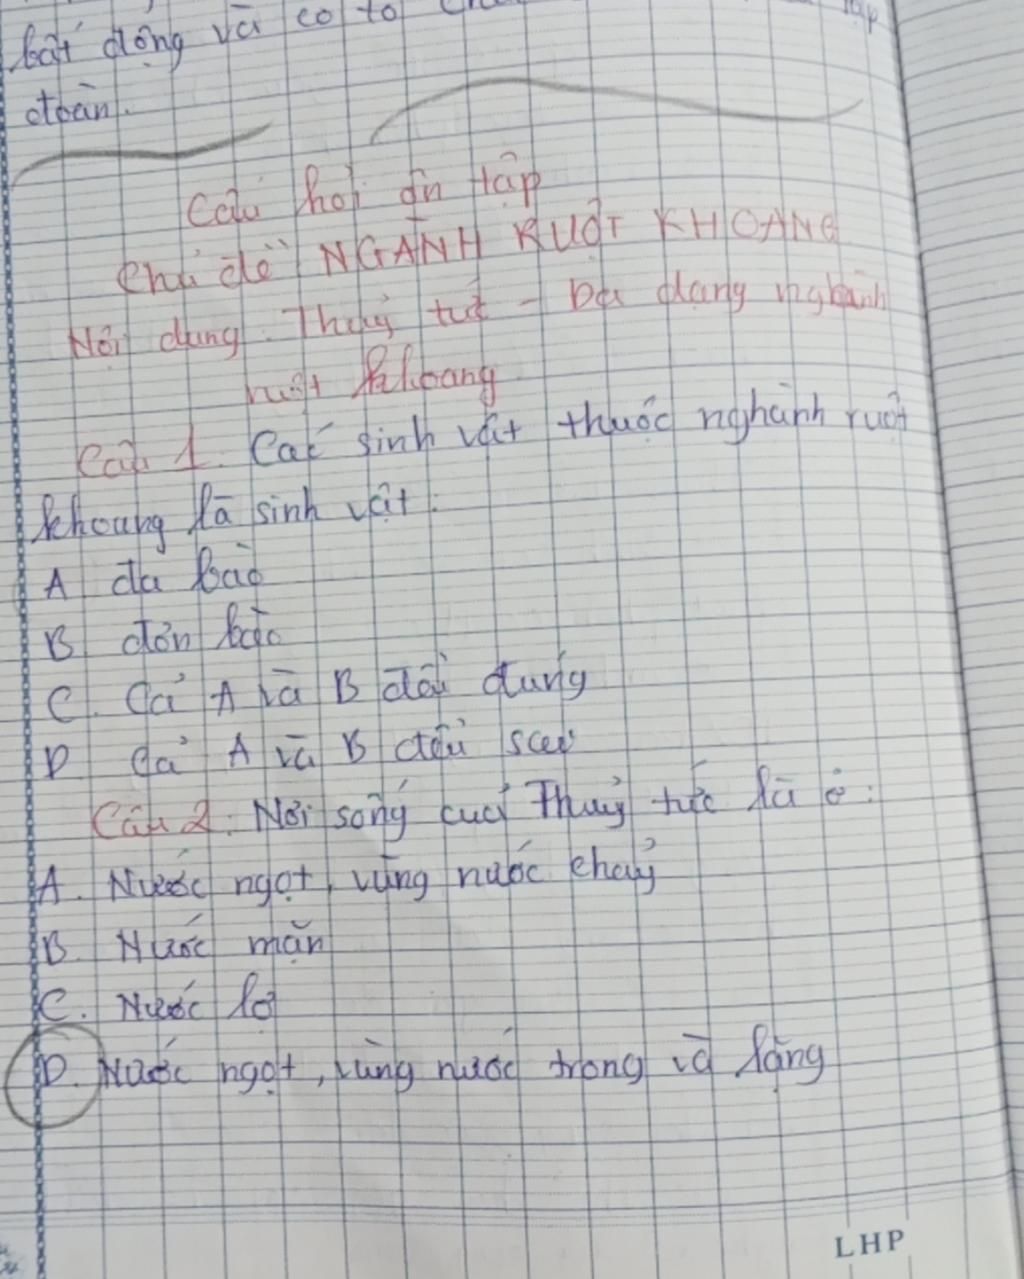 bất động và co to
đoàn.
Câu hỏi ôn tập
Chủ đề NGÀNH RUỘT KHOANG
Nội dung: Thuỷ tức - Đa dạng nghành
ruột khoang
Câu 1. Các sinh vật thuộc nghành ruột
khoang là sinh vật:
A đa bào
B đơn bào
C. Cả A và B đều đúng
D Cả A và B đều sai
Câu 2: Nơi sống của Thuỷ tức là ở:
A. Nước ngọt, vùng nước chảy
B. Nước mặn
C. Nước lợ
D. Nước ngọt, vùng nước trong và lặng
LHP